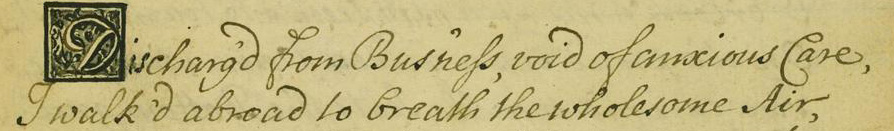 Discharg'd from Bus'ness, void of anxious Care,
I walk'd abroad to breath the wholesome Air,